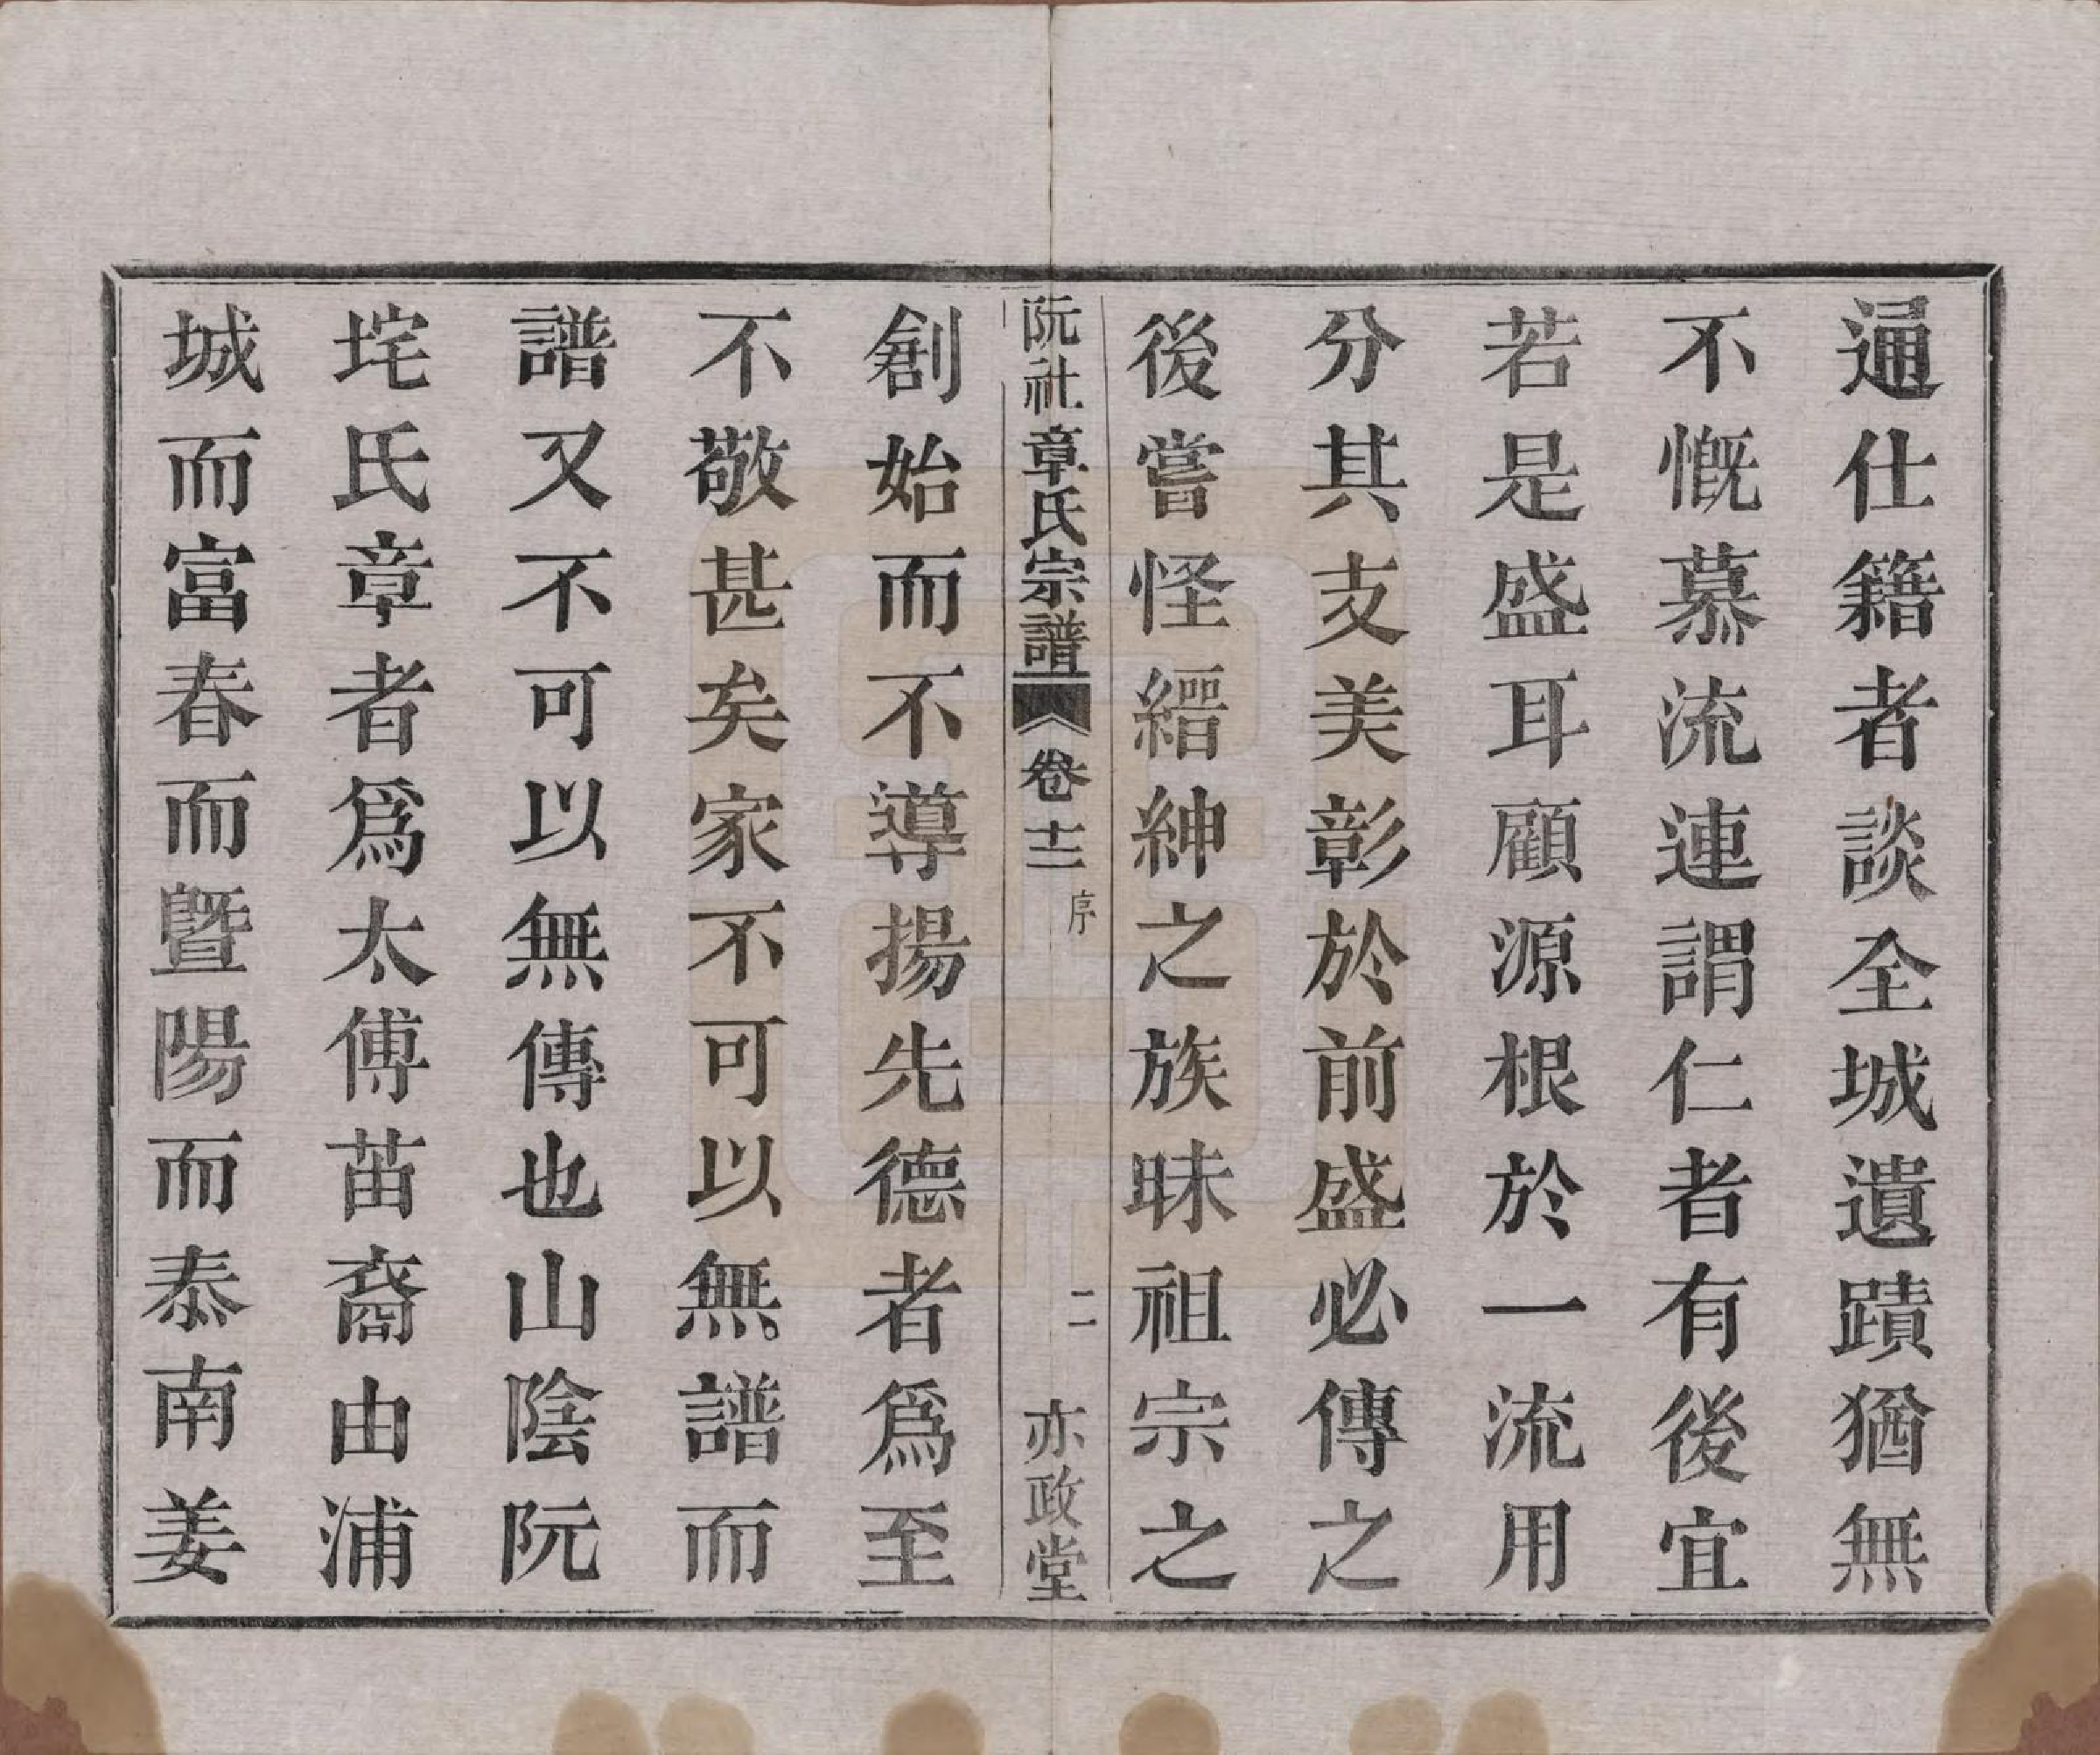 通仕籍者談全城遺蹟猶無
不慨慕流連謂仁者有後宜
若是盛耳顧源根於一流用
分其支美彰於前盛必傳之
後嘗怪縉紳之族昧祖宗之
阮社章氏宗譜 卷十二 序 二 亦政堂
創始而不導揚先德者爲至
不敬甚矣家不可以無譜而
譜又不可以無傳也山陰阮
垞氏章者爲太傅苗裔由浦
城而富春而暨陽而泰南姜